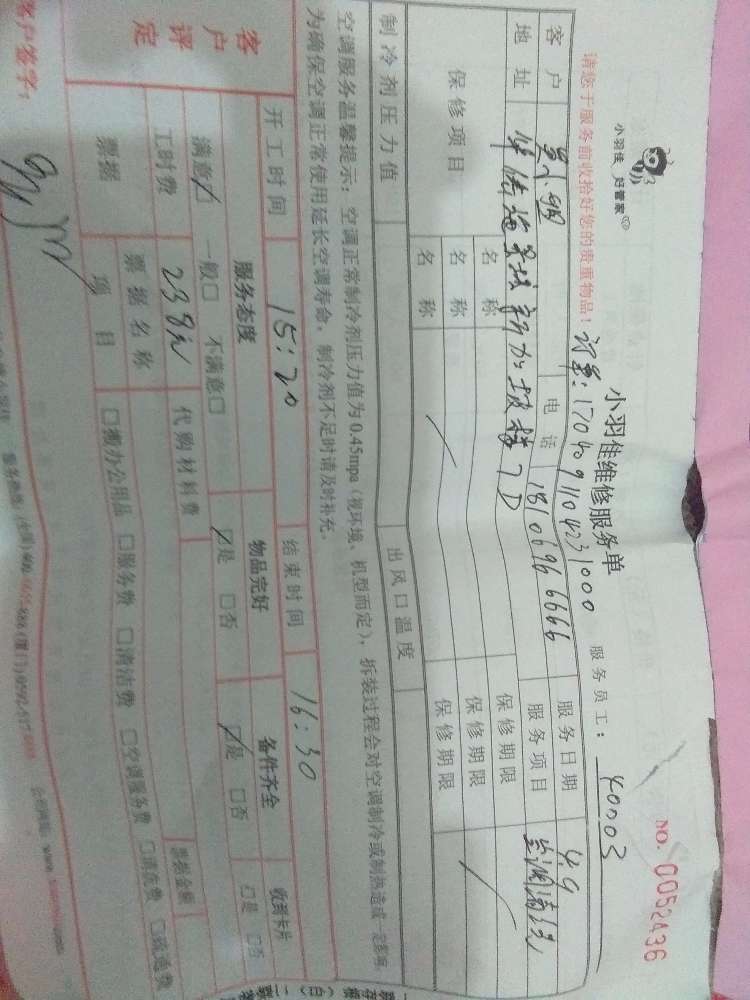 小羽佳 好管家
小羽佳维修服务单
NO. 0052436
请您于服务前收拾好您的贵重物品！ 订单：17040911042231000 服务员工： 40003
客户 电话 18106966666 服务日期 4.9
地址 新加坡 7D 服务项目 空调清洗
保修项目 名称 保修期限
名称 保修期限
名称 保修期限
制冷剂压力值 出风口温度
空调服务温馨提示：空调正常制冷剂压力值为0.45mpa（视环境、机型而定），拆装过程会对空调制冷或制热造成一定影响
为确保空调正常使用延长空调寿命，制冷剂不足时请及时补充。
客户评定 开工时间 15:20 结束时间 16:30
服务态度 物品完好 备件齐全 收到卡片
满意☑ 一般□ 不满意□ ☑是 □否 ☑是 □否 □是 □否
工时费 238元 代购材料费
票据 票据名称 票据金额
项目 □搬办公用品 □服务费 □清洁费 □空调服务费 □清洗费 □疏通费
客户签字：